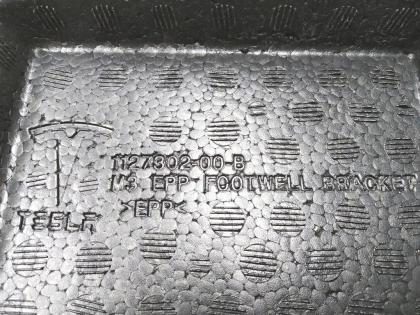 1127302-00-B
M3 EPP FOOTWELL BRACKET
>EPP<
TESLA